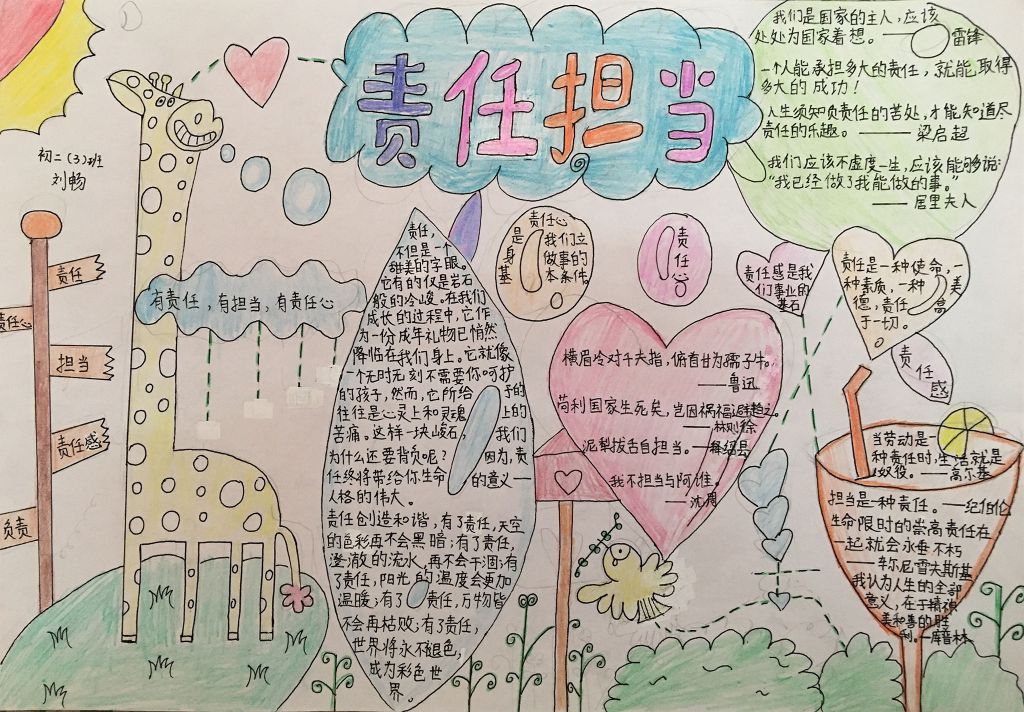 责任担当
我们是国家的主人，应该
处处为国家着想。——雷锋
一个人能承担多大的责任，就能取得
多大的成功！
人生须知负责任的苦处，才能知道尽
责任的乐趣。——梁启超
我们应该不虚度一生，应该能够说：
“我已经做了我能做的事。”
——居里夫人
初二(3)班
刘畅
责任
责任心
担当
责任感
负责
有责任，有担当，有责任心
责任，
不但是一个
甜美的字眼。
它有的仅是岩石
般的冷峻。在我们
成长的过程中，它作
为一份成年礼物已悄然
降临在我们身上。它就像
一个无时无刻不需要你呵护
的孩子，然而，它所给予的
往往是心灵上和灵魂上的
苦痛。这样一块峻石，我们
为什么还要背负呢？因为，责
任终将带给你生命的意义——
人格的伟大。
责任创造和谐，有了责任，天空
的色彩再不会黑暗；有了责任，
澄澈的流水，再不会干涸；有
了责任，阳光的温度会更加
温暖；有了责任，万物皆
不会再枯败；有了责任，
世界将永不褪色，
成为彩色世
界。
责任心
是我们立
身做事的
基本条件
责
任
心
责任感是我
们事业的
基石
责任是一种使命，一
种素质，一种美
德，责任高
于一切。
责
任
感
横眉冷对千夫指，俯首甘为孺子牛。
——鲁迅
苟利国家生死矣，岂因祸福避趋之。
——林则徐
泥犁拔舌自担当。——释绍昙
我不担当与阿谁。
——沈周
当劳动是一
种责任时，生活就是
奴役。——高尔基
担当是一种责任。——纪伯伦
生命限时的崇高责任在
一起就会永垂不朽
——车尔尼雪夫斯基
我认为人生的全部
意义，在于精神
美和善的胜
利。——库普林